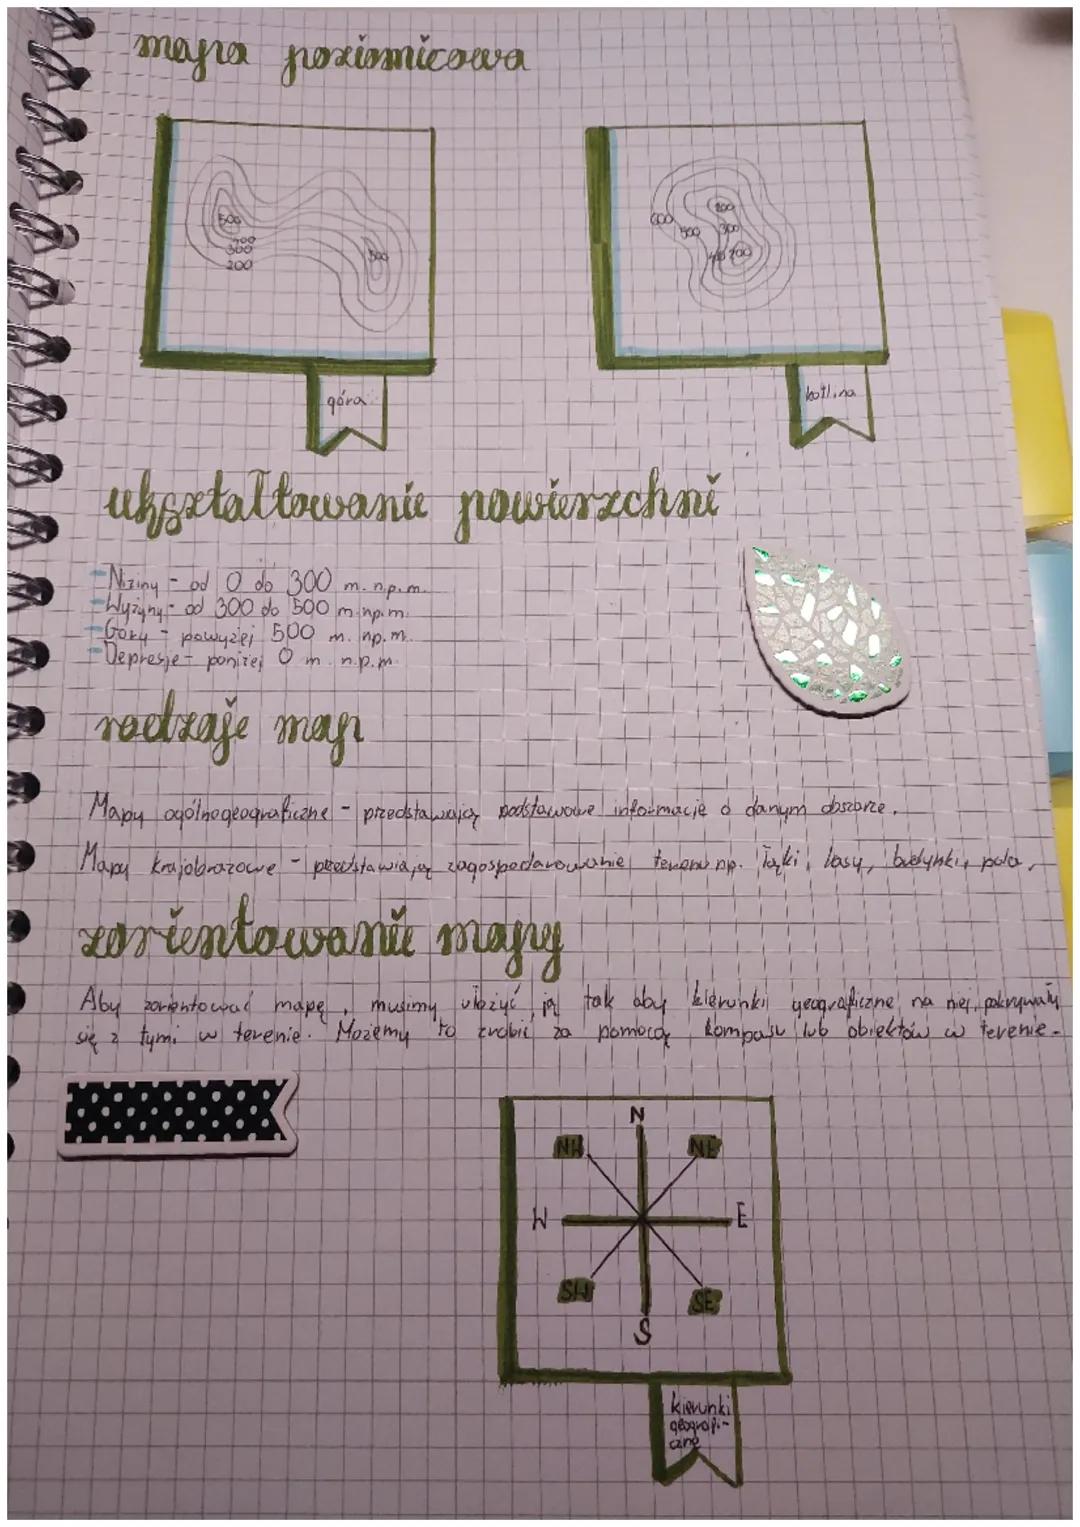 mapa poziomicowa
500
300
300
200
500
600
500
200
300
200
góra
kotlina
ukształtowanie powierzchni
- Niziny - od 0 do 300 m. n.p.m.
- Wyżyny - od 300 do 500 m. n.p.m.
- Góry - powyżej 500 m. n.p.m.
- Depresje - poniżej 0 m. n.p.m.
rodzaje map
Mapy ogólnogeograficzne - przedstawiają podstawowe informacje o danym obszarze.
Mapy krajobrazowe - przedstawiają zagospodarowanie terenu np. łąki, lasy, budynki, pola.
zorientowanie mapy
Aby zorientować mapę, musimy ułożyć ją tak aby kierunki geograficzne na niej pokrywały
się z tymi w terenie. Możemy to zrobić za pomocą kompasu lub obiektów w terenie.
N
NW NE
W E
SW SE
S
kierunki
geografi-
czne